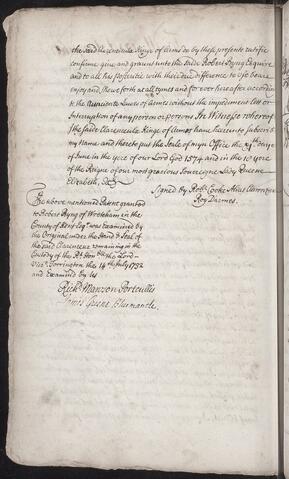 the said Clarencieulx Kinge of Armes do by these presents ratifie
confirme give and graunt unto the saide Robert Byng Esquire
and to all his posteritie with their due difference to use beare
enjoy and shewe forth at all tymes and for ever hereafter according
to the Auncient Lawes of Armes without the impediment Lett or
Interruption of any person or persons In Witnesse whereof
I the saide Clarencieulx Kinge of Armes have hereunto subscrib'd
my Name and thereto put the Seale of myn Office the daye
of June in the yere of our Lord God 1574 and in the 16 yere
of the Reigne of our most gracious Sovereigne Lady Queene
Elizabeth, &c
Signed by Robt. Cooke Alias Clarencieulx
Roy Darmes.
The above mentioned Patent granted
to Robert Byng of Wrotham in the
County of Kent Esqr. was examined by
the Original under the Hand & Seal of
the said Clarenceux remaining in the
Custody of the Rt. Honble. the Lord
Visct. Torrington the 14th. July 1732
and Examined by Us
Richd. Manson Portcullis
James Greene Bluemantle.